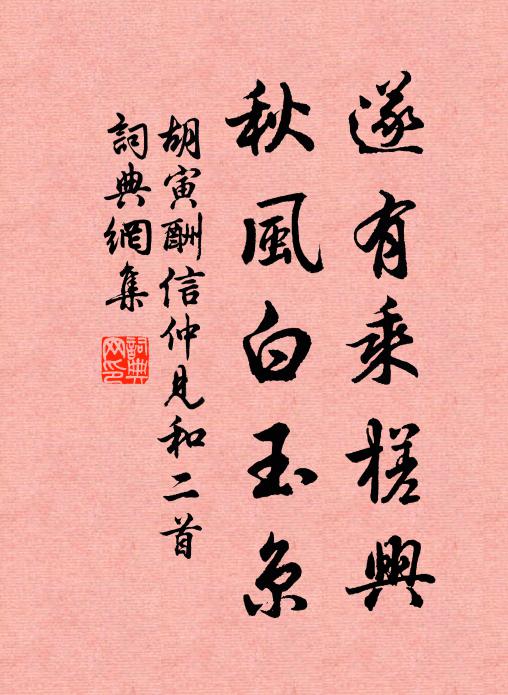 遂有乘槎興
秋風白玉京
胡寅酬信仲見和二首
詞典網集
詞典
网印